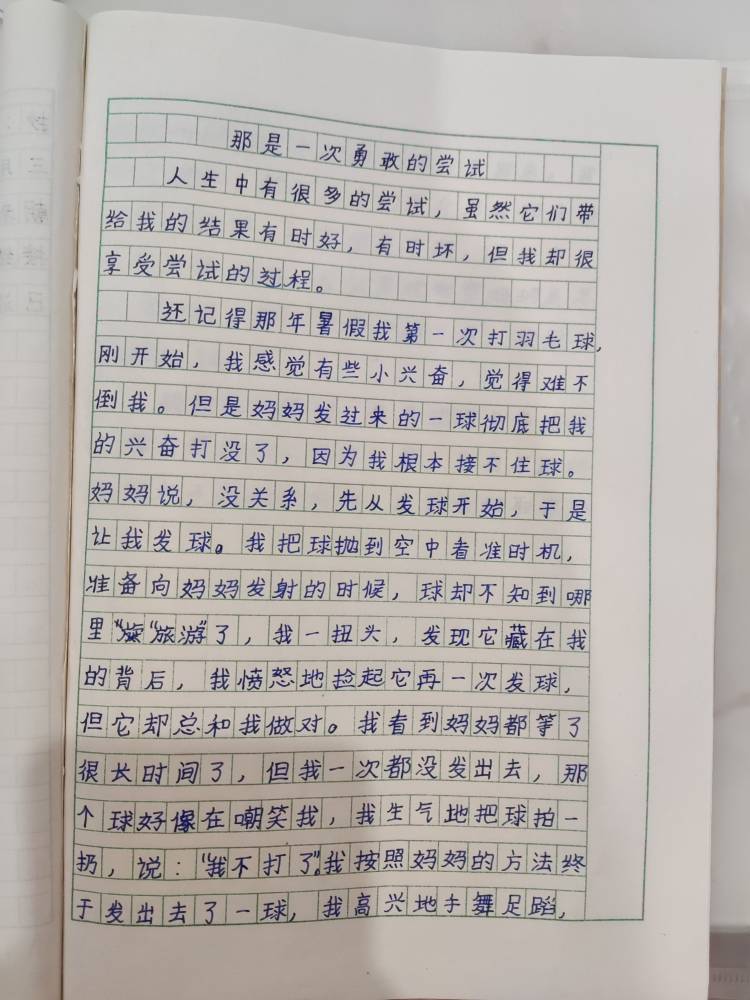 那是一次勇敢的尝试
人生中有很多的尝试，虽然它们带
给我的结果有时好，有时坏，但我却很
享受尝试的过程。
还记得那年暑假我第一次打羽毛球，
刚开始，我感觉有些小兴奋，觉得难不
倒我。但是妈妈发过来的一球彻底把我
的兴奋打没了，因为我根本接不住球。
妈妈说，没关系，先从发球开始，于是
让我发球。我把球抛到空中看准时机，
准备向妈妈发射的时候，球却不知到哪
里“旅游”了，我一扭头，发现它藏在我
的背后，我愤怒地捡起它再一次发球，
但它却总和我做对。我看到妈妈都等了
很长时间了，但我一次都没发出去，那
个球好像在嘲笑我，我生气地把球拍一
扔，说：“我不打了”。我按照妈妈的方法终
于发出去了一球，我高兴地手舞足蹈，